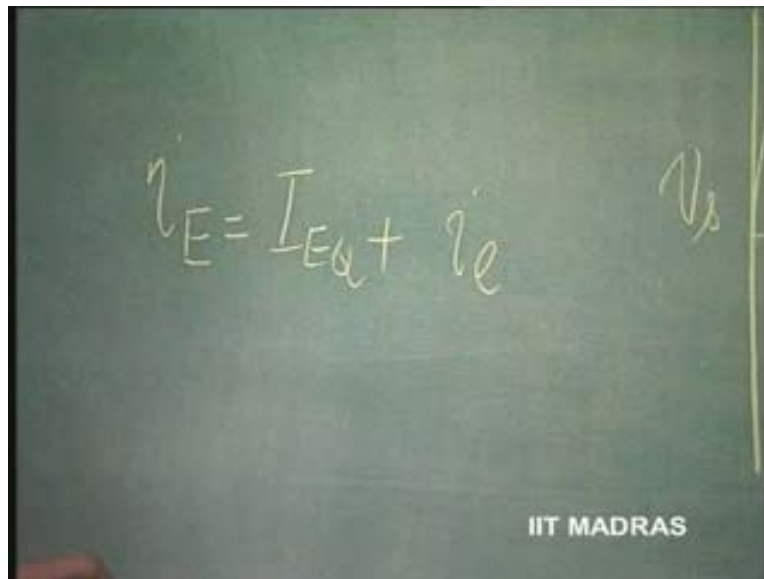 i_E = I_EQ + i_e
v_s
IIT MADRAS